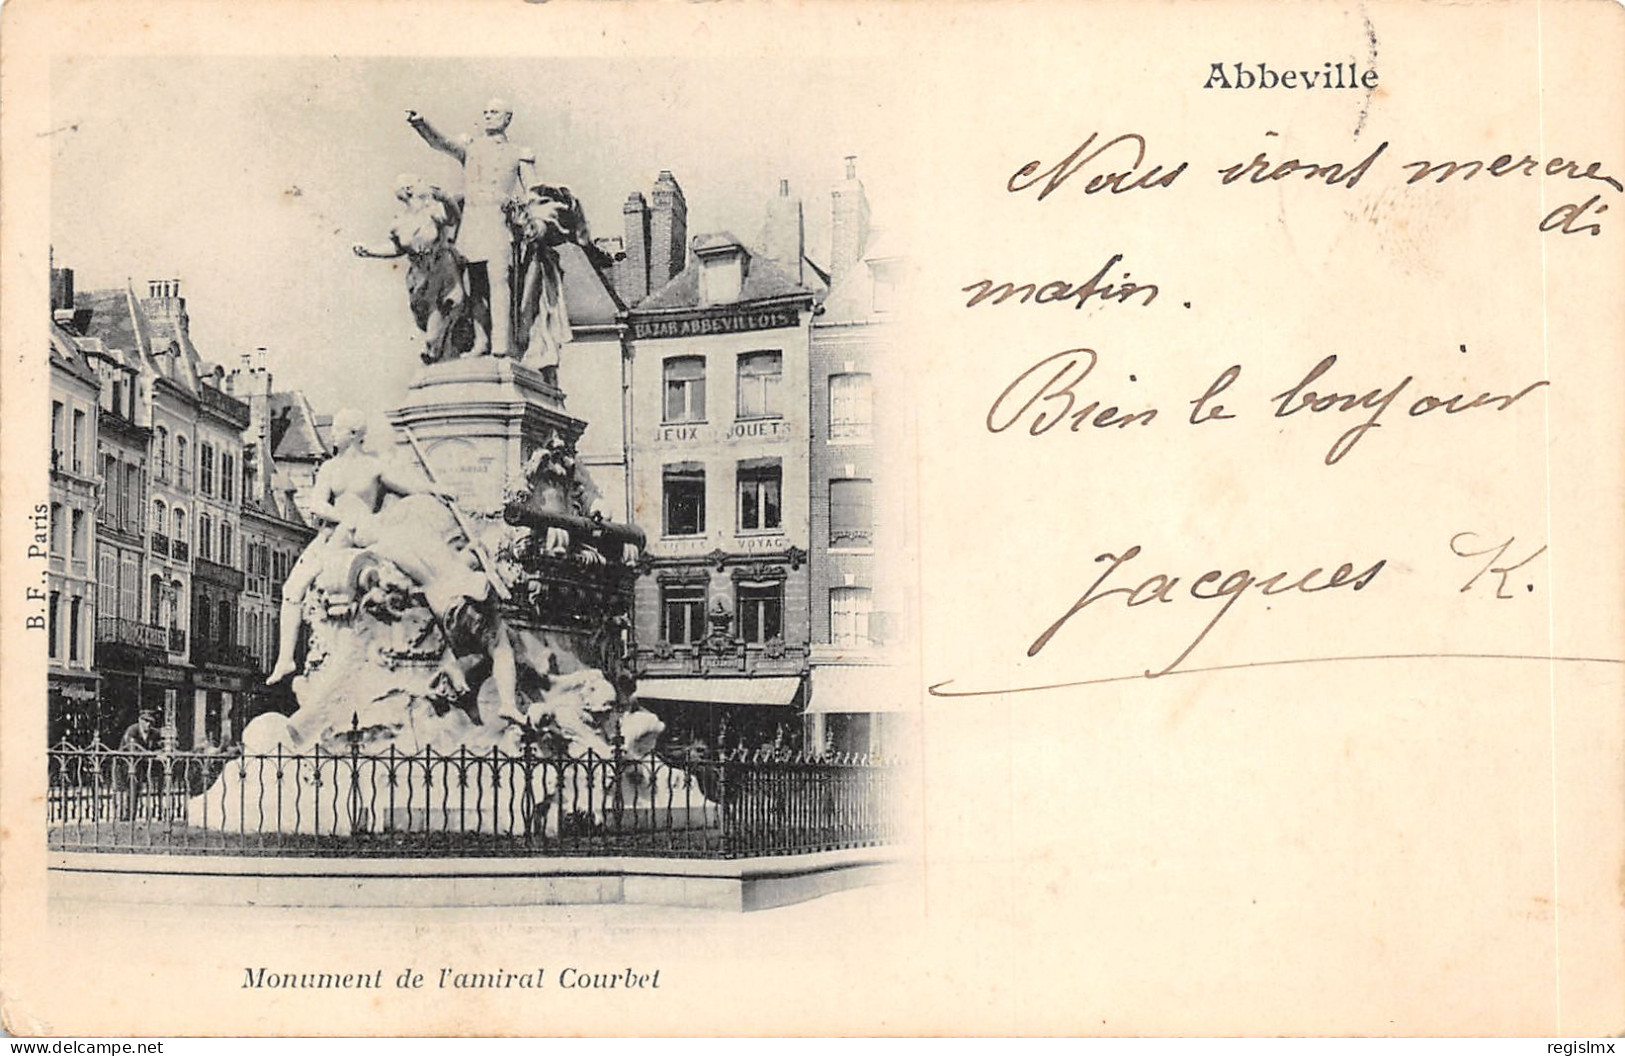 Abbeville
Nous iront mercre-
di
matin.
Bien le bonjour
Jacques K.
BAZAR ABBEVILLOIS
JEUX JOUETS
VOYAGE
B. F., Paris
Monument de l'amiral Courbet
delcampe.net
regislmx